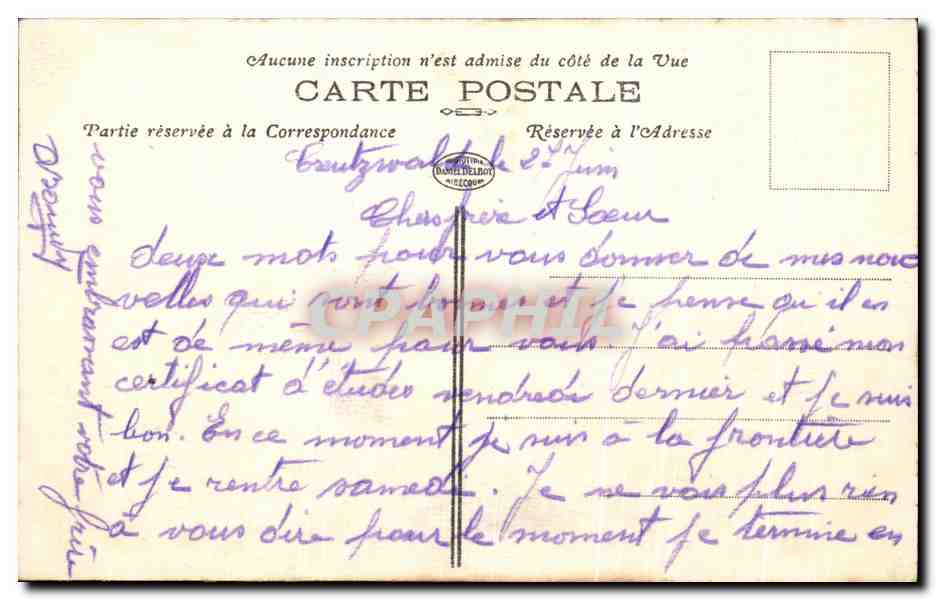 Aucune inscription n'est admise du côté de la Vue
CARTE POSTALE
Partie réservée à la Correspondance
Réservée à l'Adresse
DANIEL DELBOY
MIRECOURT
Creutzwald le 27 Juin
Chers frère et Soeur
deux mots pour vous donner de mes nou
velles qui sont bonnes et je pense qu'il en
est de même pour vous. J'ai passé mon
certificat d'études vendredi dernier et je suis
bon. En ce moment je suis à la frontière
et je rentre samedi. Je ne vois plus rien
à vous dire pour le moment je termine en
vous embrassant votre frère
CPAPHIL